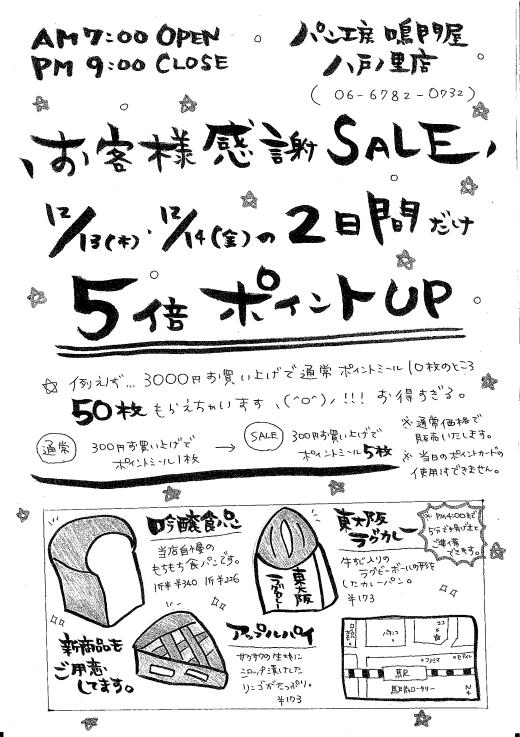 AM 7:00 OPEN
PM 9:00 CLOSE
パン工房 鳴門屋
八戸ノ里店
(06-6782-0732)
お客様感謝SALE
12/13(木)・12/14(金)の2日間だけ
5倍ポイントUP
☆例えば… 3000円お買い上げで通常ポイントミール10枚のところ
50枚もらえちゃいます ヽ(^o^)ノ!!! お得すぎる。
通常
300円お買い上げで
ポイントミール1枚
→
SALE
300円お買い上げで
ポイントミール5枚
※通常価格で
販売いたします。
※当日のポイントカードの
使用はできません。
吟醸食パン
当店自慢の
もちもち食パンです。
1斤半¥340 1斤¥226
東大阪
ラグカレー
東大阪
ラグカレー
牛すじ入りの
ラグビーボールの形を
したカレーパン。
¥173
※PM4:00まで
ご準備
できます。
新商品も
ご用意
してます。
アップルパイ
サクサクの生地に
シロップ漬けした
リンゴがたっぷり。
¥173
パチンコ
ココ
☆
駅
駅前ロータリー
N